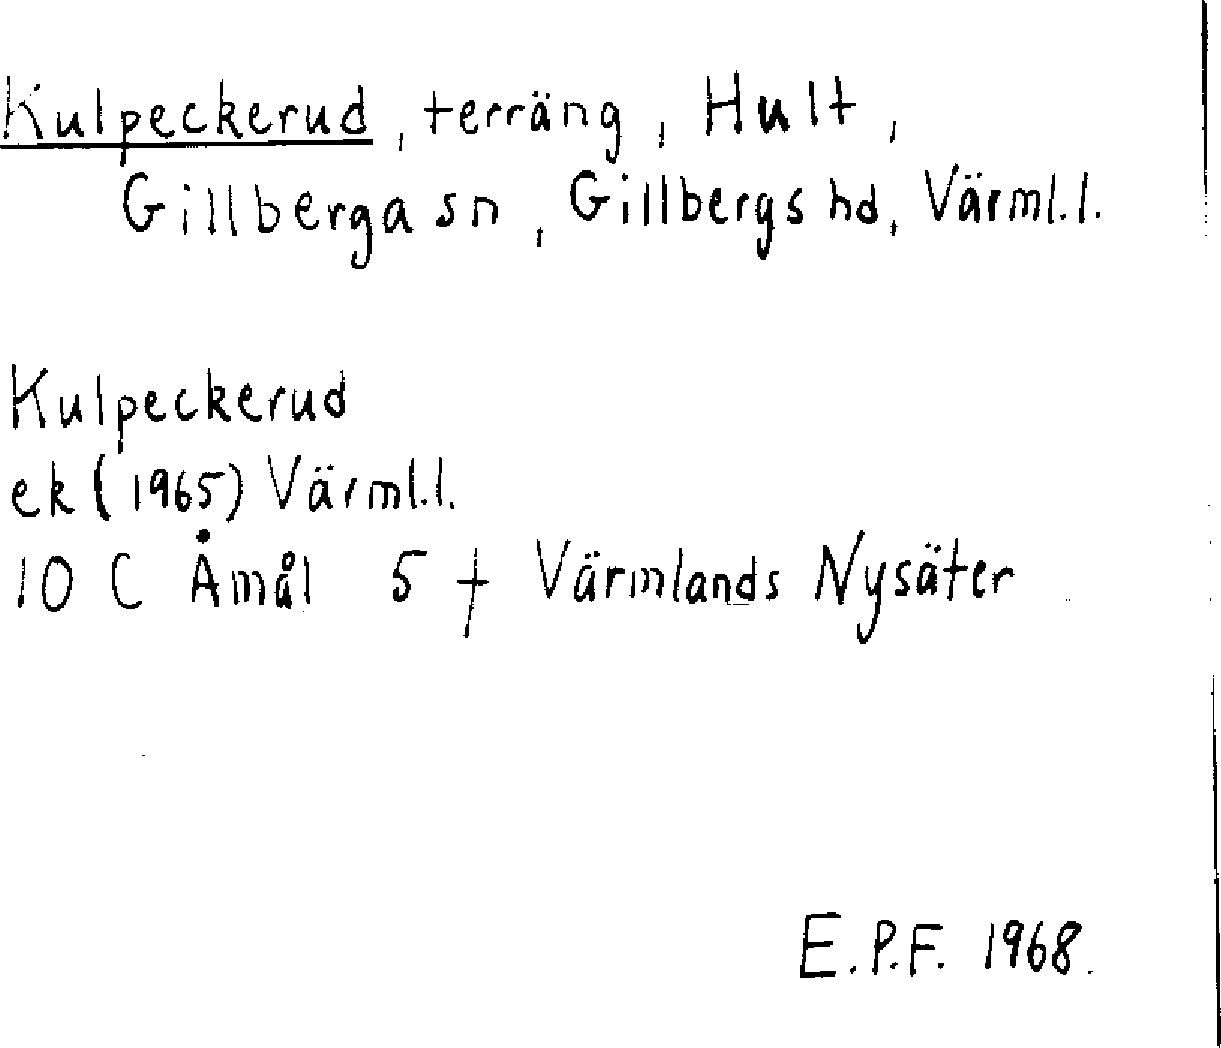 Kulpeckerud, terräng, Hult,
Gillberga sn, Gillbergs hd, Värml.l.
Kulpeckerud
ek (1965) Värml.l.
10 C Åmål 5 f Värmlands Nysäter
E.P.F. 1968.